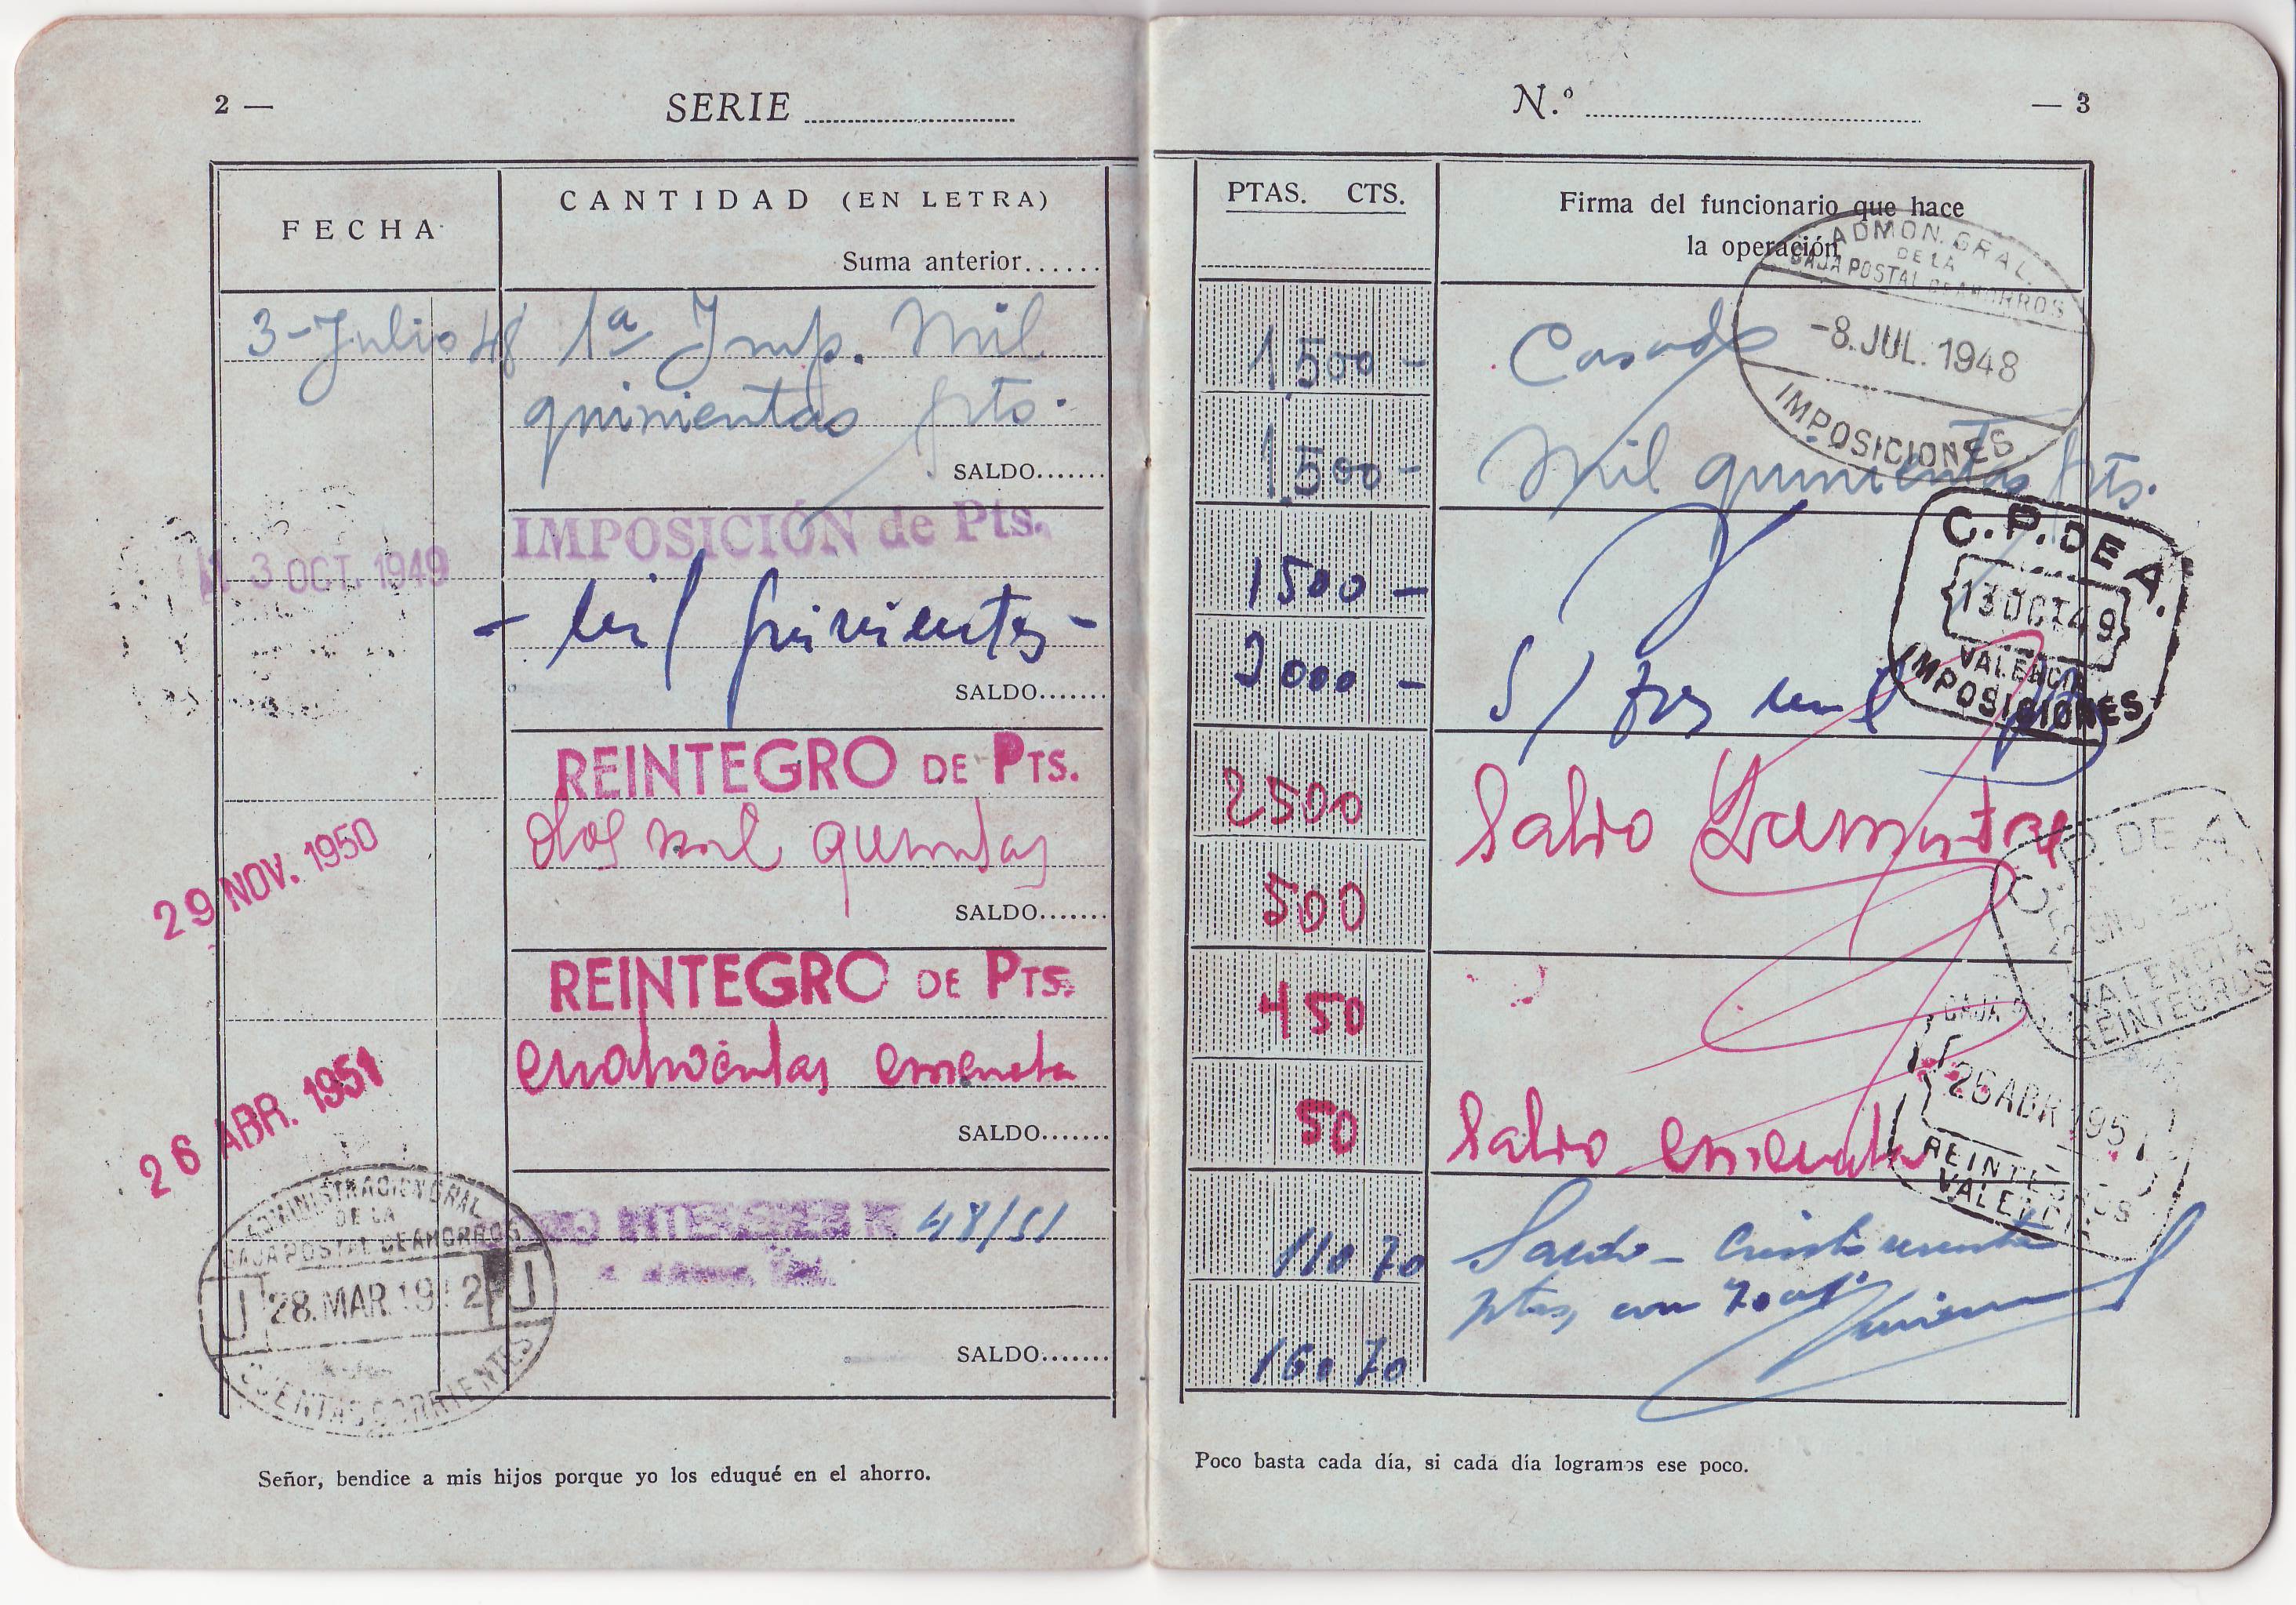 2 —
SERIE
FECHA
CANTIDAD (EN LETRA)
Suma anterior......
3-Julio 48 1ª Imp. Mil
quinientas pts.
SALDO.......
IMPOSICIÓN de Pts.
13 OCT. 1949
- mil quinientas -
SALDO.......
REINTEGRO DE PTS.
29 NOV. 1950
dos mil quinientas
SALDO.......
REINTEGRO DE PTS.
26 ABR. 1951
cuatrocientas cincuenta
SALDO.......
48/51
ADMINISTRACION GRAL.
DE LA
CAJA POSTAL DE AHORROS
28. MAR. 19 2
CUENTAS CORRIENTES
SALDO.......
Señor, bendice a mis hijos porque yo los eduqué en el ahorro.
N.º
— 3
PTAS. CTS.
Firma del funcionario que hace
la operación
ADMON. GRAL.
DE LA
CAJA POSTAL DE AHORROS
-8. JUL. 1948
IMPOSICIONES
1.500 - Casado
1.500 - Mil quinientas pts.
C.P. DE A.
13 OCT 49
VALENCIA
IMPOSICIONES
1500 -
3000 - S/ tres mil
2500 Saldo
500
C.P. DE A.
VALENCIA
REINTEGROS
450
CAJA
26 ABR 1951
REINTEGROS
VALENCIA
50 Saldo cincuenta
110 70 Saldo - Ciento sesenta
ptas, con 70 cts
160 70
Poco basta cada día, si cada día logramos ese poco.